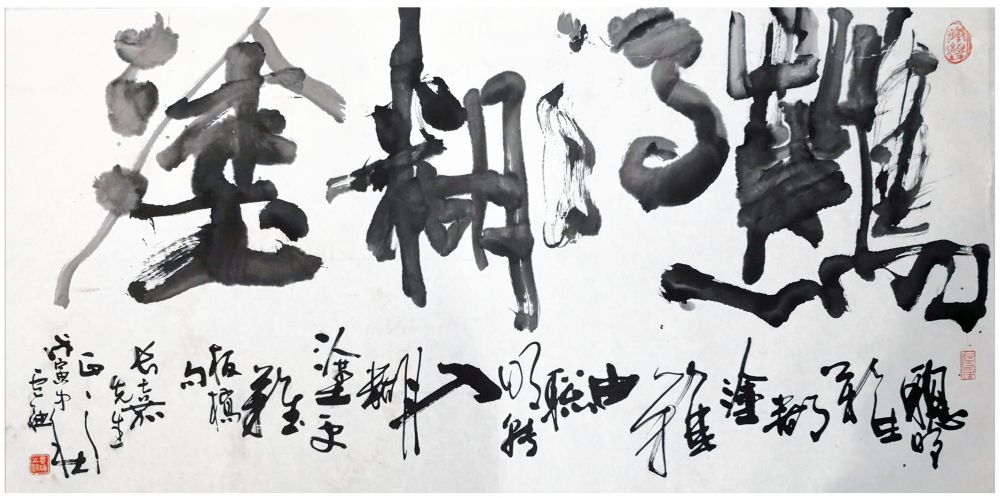 難得糊塗
聰明
難
糊
塗
難
由
聪
明转
入
糊
塗更
難
板橋
句
先生
正之
戊寅年